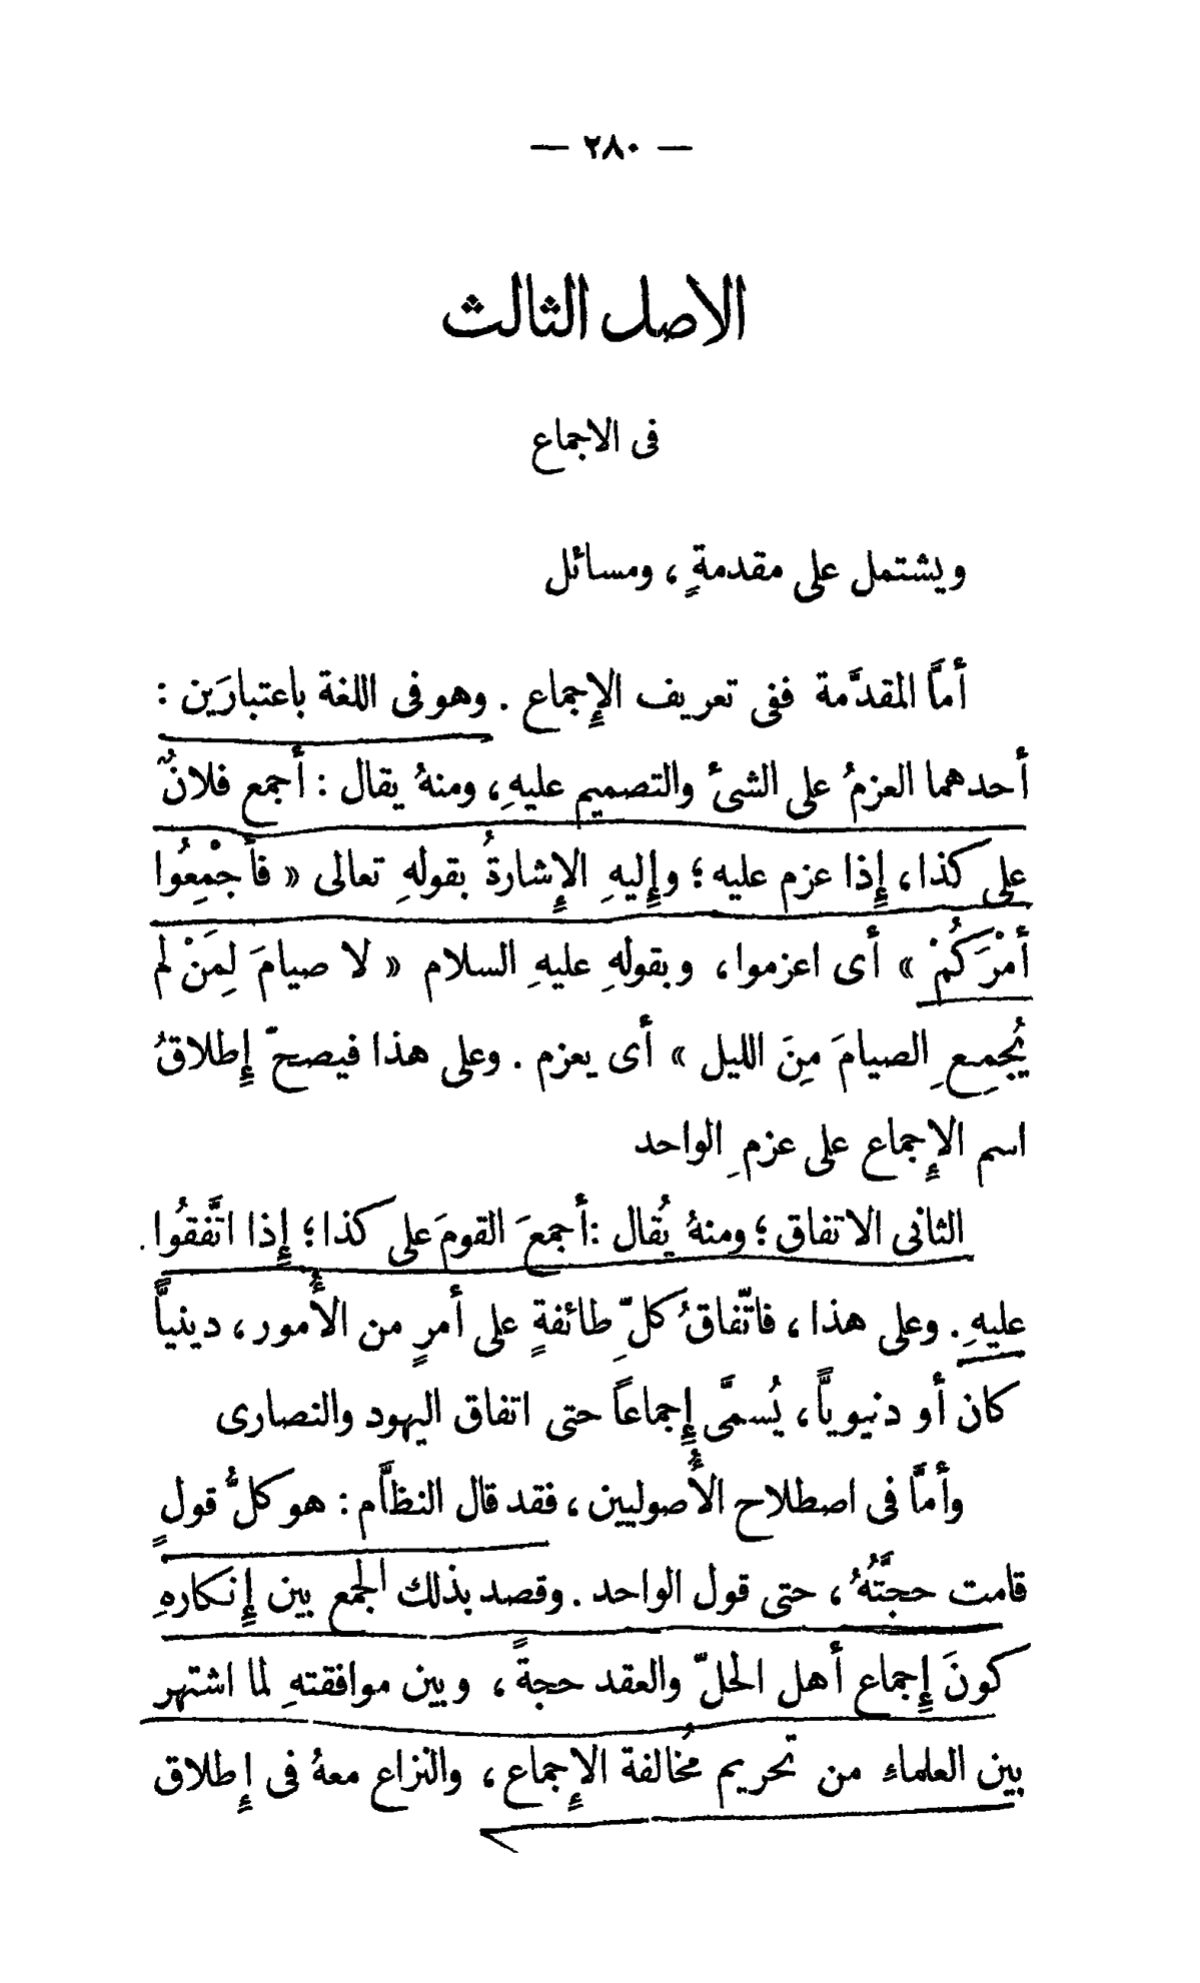 — ٢٨٠ —
الاصل الثالث
فى الاجماع
ويشتمل على مقدمةٍ ، ومسائل
أمَّا المقدَّمة ففى تعريف الإِجماع . وهو فى اللغة باعتبارَين :
أحدهما العزمُ على الشىءُ والتصميم عليهِ ، ومنهُ يقال : أجمع فلانٌ
على كذا ، إِذا عزم عليه ؛ وإِليهِ الإِشارةُ بقولهِ تعالى « فأَجْمِعُوا
أمْرَكُمْ » أى اعزموا ، وبقولهِ عليهِ السلام « لا صيامَ لِمَنْ لم
يُجمِعِ الصيامَ مِنَ الليل » أى يعزم . وعلى هذا فيصحّ إِطلاقُ
اسم الإِجماع على عزمِ الواحد
الثانى الاتفاق ؛ ومنهُ يُقال : أجمعَ القومَ على كذا ؛ إِذا اتَّفقُوا
عليهِ . وعلى هذا ، فاتّفاقُ كلّ طائفةٍ على أمرٍ من الأُمور ، دينياًّ
كان أو دنيوياًّ ، يُسمَّى إِجماعاً حتى اتفاق اليهود والنصارى
وأمَّا فى اصطلاح الأُصوليين ، فقد قال النظاَّم : هو كلُّ قولٍ
قامت حجتَّهُ ، حتى قول الواحد . وقصد بذلك الجمع بين إِنكارهِ
كونَ إِجماع أهل الحلّ والعقد حجةً ، وبين موافقتهِ لما اشتهر
بين العلماءِ من تحريم مُخالفة الإِجماع ، والنزاع معهُ فى إِطلاق